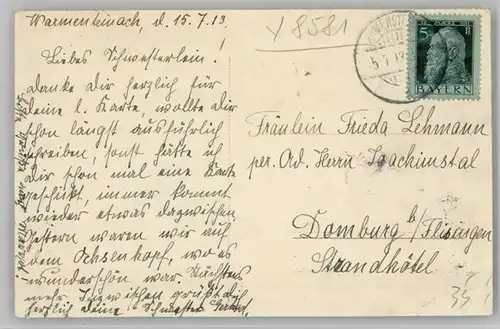 Warmenkinach, d. 15.7.13.
Liebes Schwesterlein!
danke Dir herzlich für
deine l. Karte, wollte dir
schon längst ausführlich
schreiben, sonst hätte ich
Dir schon mal eine Karte
geschickt, immer kommt
wieder etwas dazwischen
Gestern waren wir auf
dem Ochsenkopf, wo es
wunderschön war. Nächstens
mehr. Inzwischen grüßt dich
herzlich deine Schwester
Y 8581
5 BAYERN
Fräulein Frieda Lehmann
per. Ad. Herrn Joachimstal
Domburg b/Flissingen
Strandhôtel